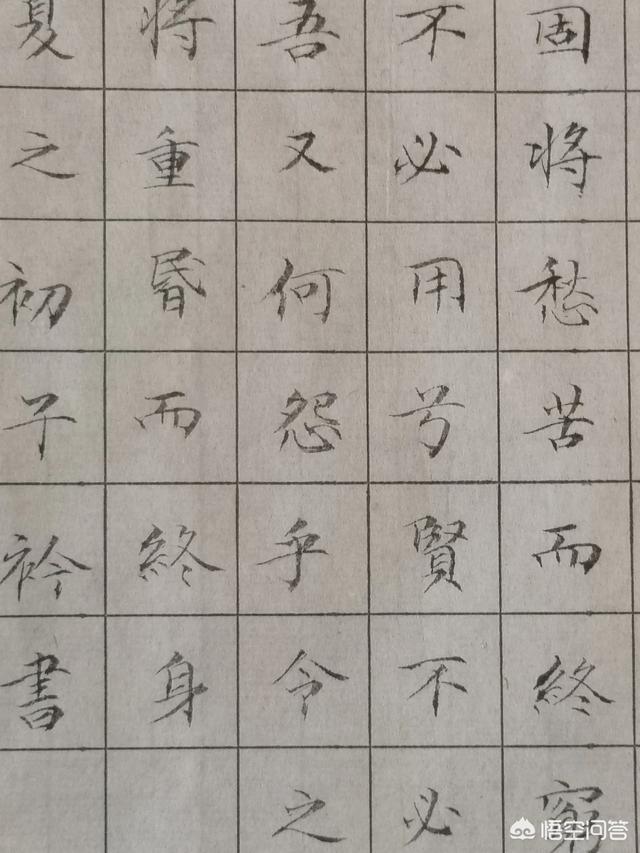 固将愁苦而終窮
不必用兮賢不必
吾又何怨乎令之
将重昬而終身
夏之初子衿書
悟空问答